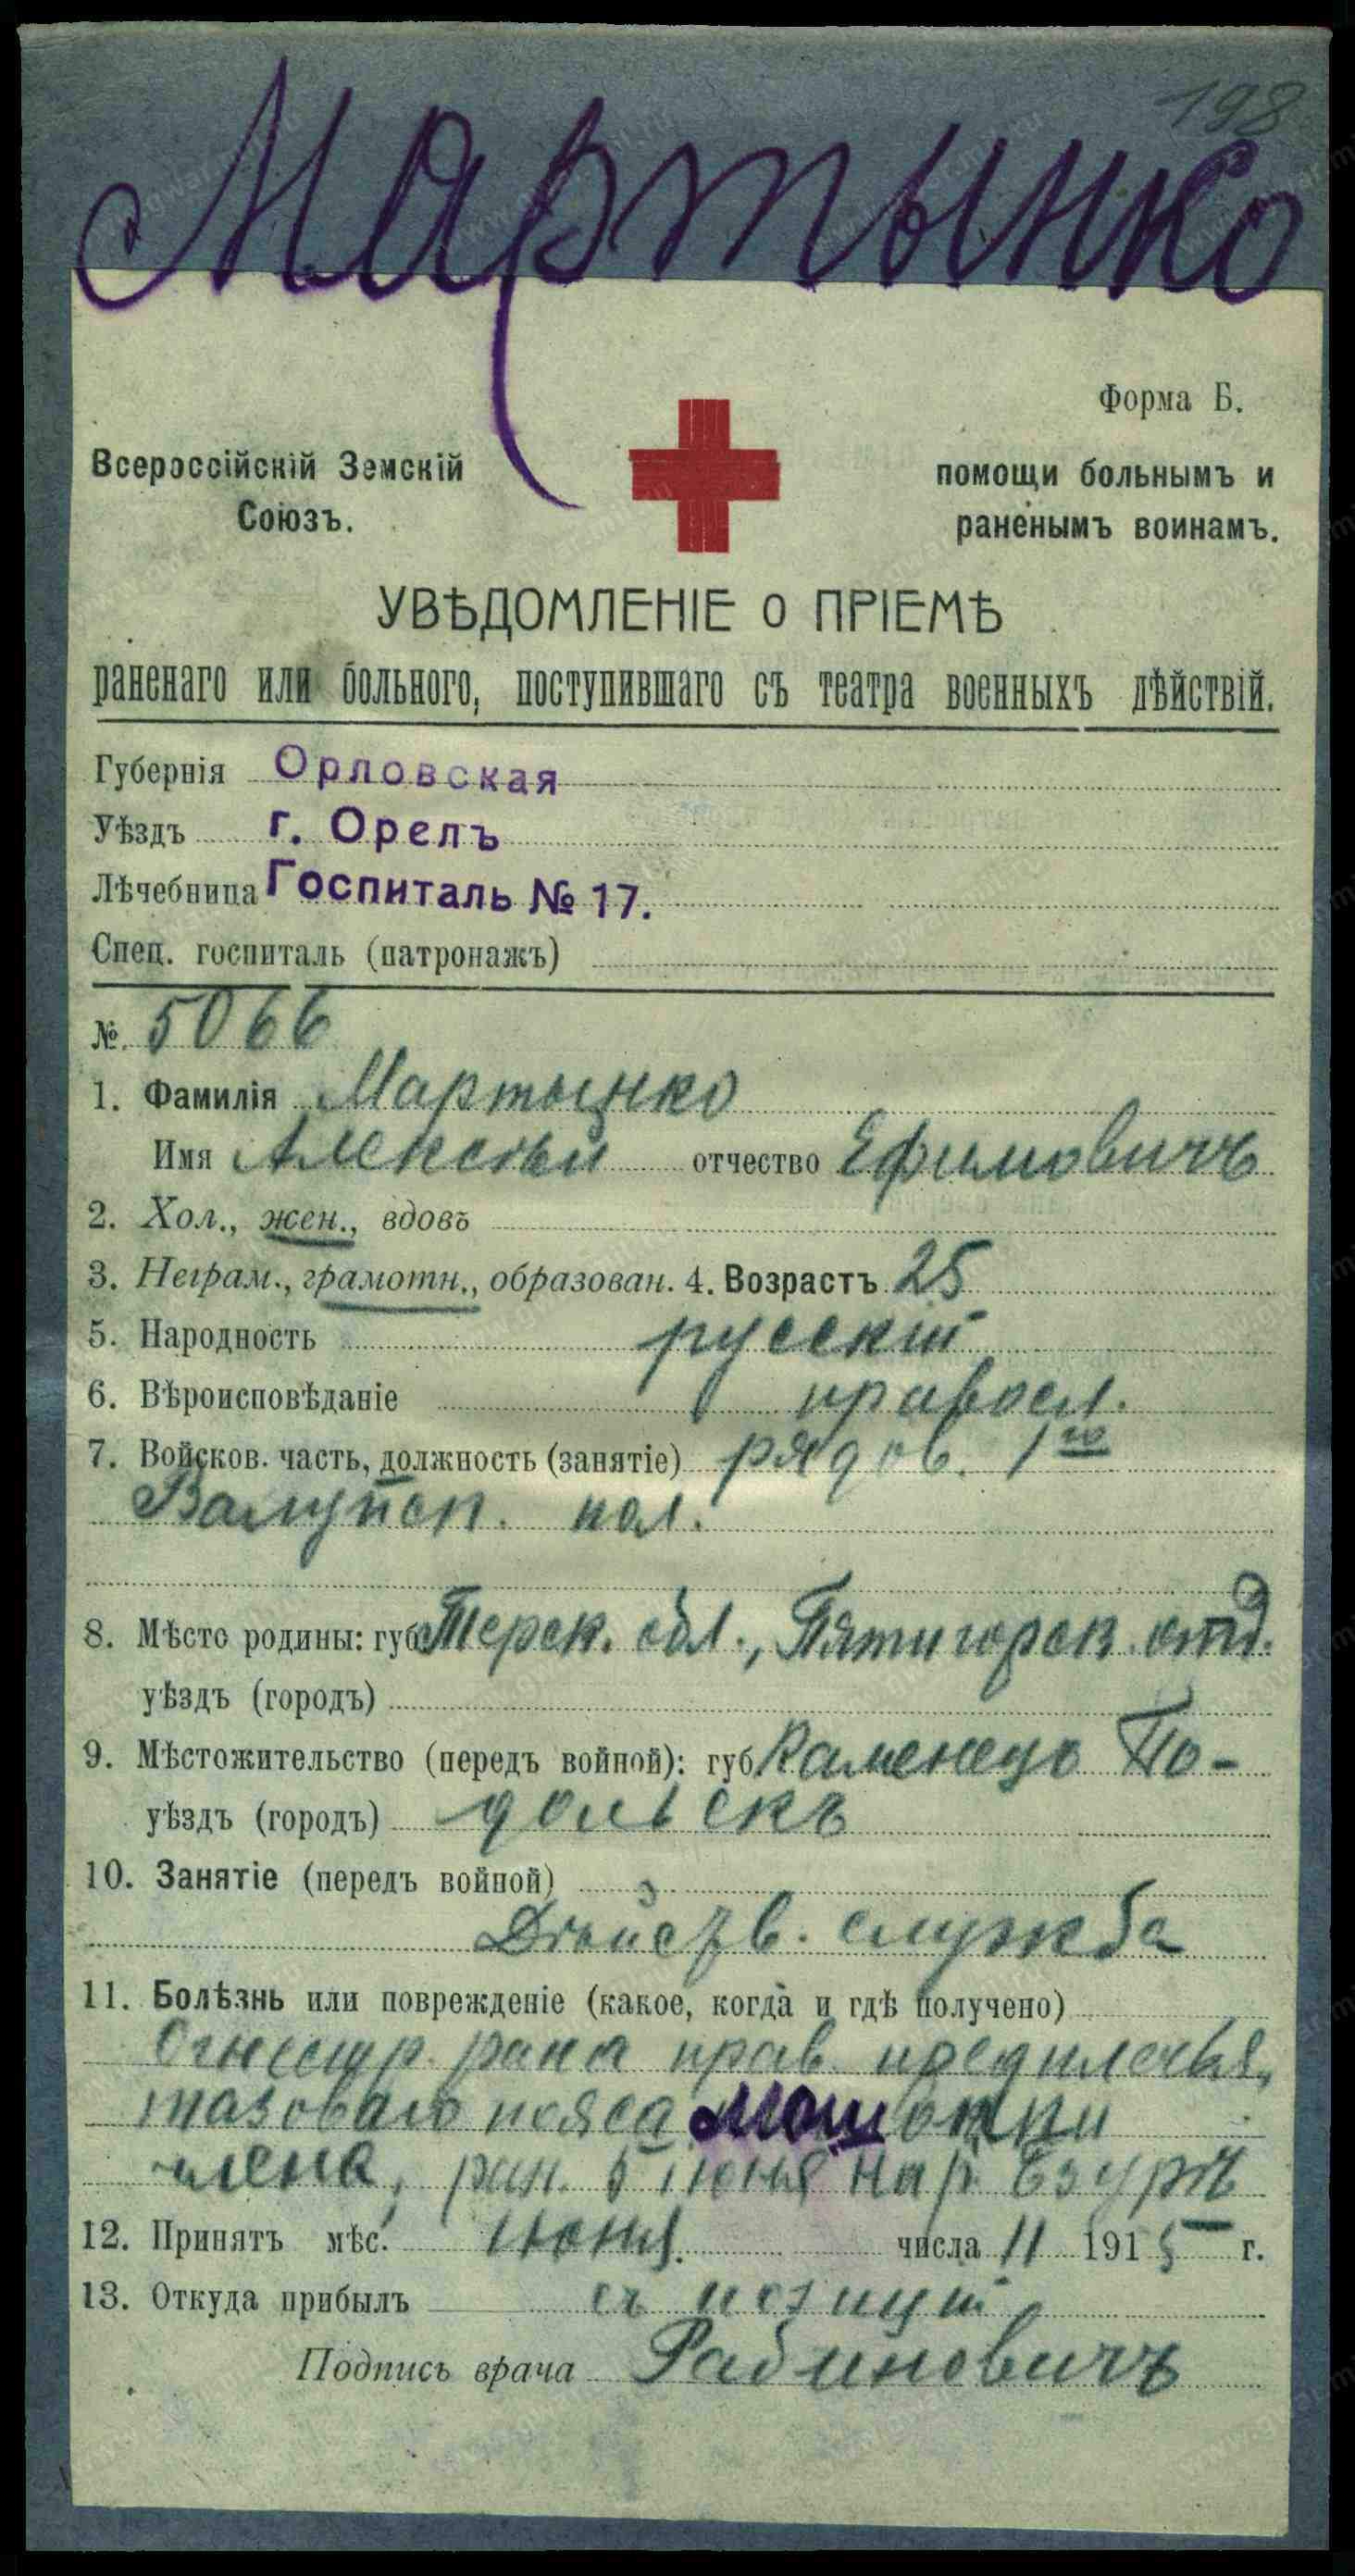 198
Мартынко
Форма Б.
Всероссійскій Земскій
Союзъ.
помощи больнымъ и
раненымъ воинамъ.
УВѢДОМЛЕНІЕ о ПРІЕМѢ
раненаго или больного, поступившаго съ театра военныхъ дѣйствій.
Губернія Орловская
Уѣздъ г. Орелъ
Лѣчебница Госпиталь № 17.
Спец. госпиталь (патронажъ)
№. 5066
1. Фамилія Мартынко
Имя Алексѣй отчество Ефимовичъ
2. Хол., жен., вдовъ
3. Неграм., грамотн., образован. 4. Возрастъ 25
5. Народность русскій
6. Вѣроисповѣданіе правосл.
7. Войсков. часть, должность (занятіе) рядов. 1го
Валуйск. пол.
8. Мѣсто родины: губ. Терск. обл., Пятигорск. отд.
уѣздъ (городъ)
9. Мѣстожительство (передъ войной): губ. Каменецъ По-
уѣздъ (городъ) дольскъ
10. Занятіе (передъ войной)
Дѣйств. служба
11. Болѣзнь или поврежденіе (какое, когда и гдѣ получено)
Огнестр. рана прав. предплечья,
тазоваго пояса мошонки
члена, ран. 5 июня на р. Бзурѣ
12. Принятъ мѣс. июня числа 11 1915 г.
13. Откуда прибылъ съ позиціи
Подпись врача Рабиновичъ